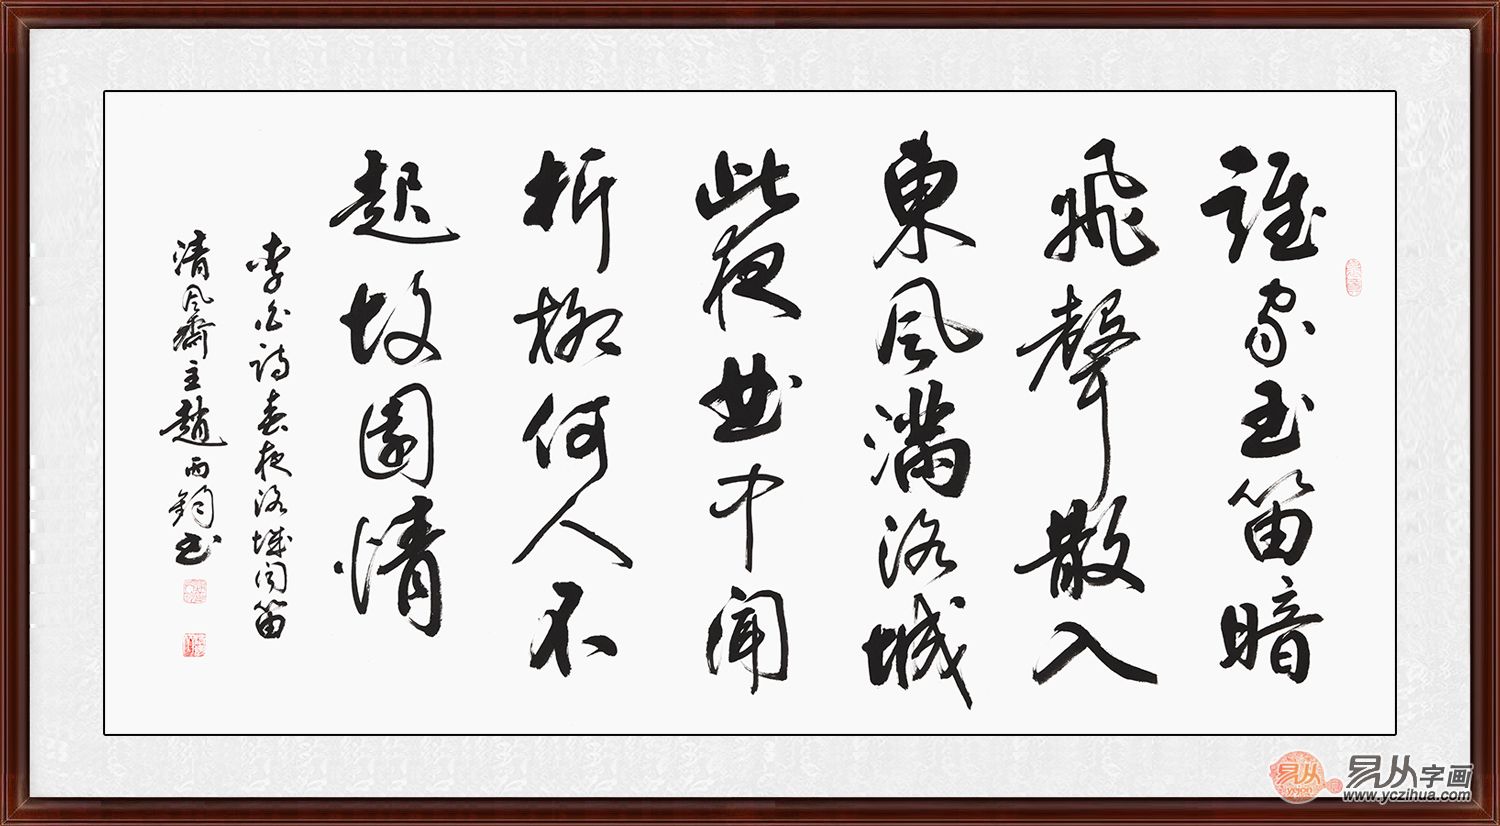 誰家玉笛暗
飛聲散入
東風滿洛城
此夜曲中聞
折柳何人不
起故園情
李白詩春夜洛城聞笛
清風齋主趙鈞書
易从
易从字画
www.yczihua.com